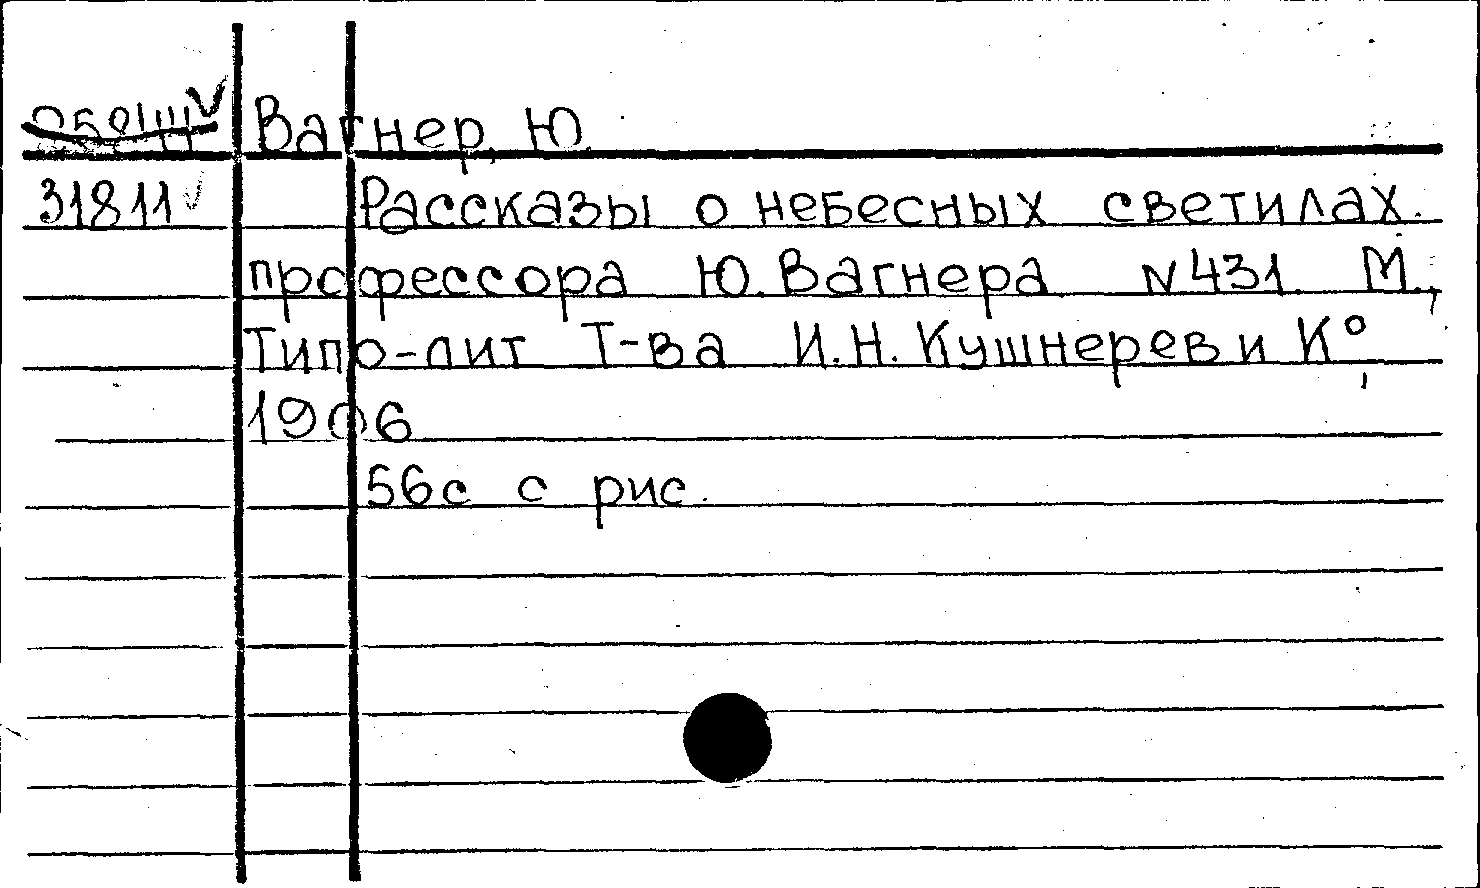 Вагнер, Ю.
31811 Рассказы о небесных светилах.
профессора Ю. Вагнера N 431. М.,
Типо-лит Т-ва И.Н. Кушнерев и К°,
1906
56с с рис.